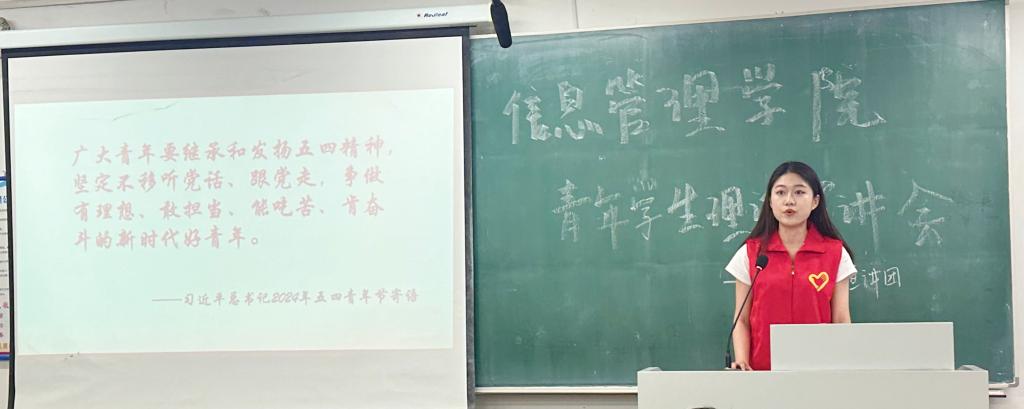 Redleaf
广大青年要继承和发扬五四精神，
坚定不移听党话、跟党走，争做
有理想、敢担当、能吃苦、肯奋
斗的新时代好青年。
——习近平总书记2024年五四青年节寄语
信息管理学院
青年学生理 讲会
讲团